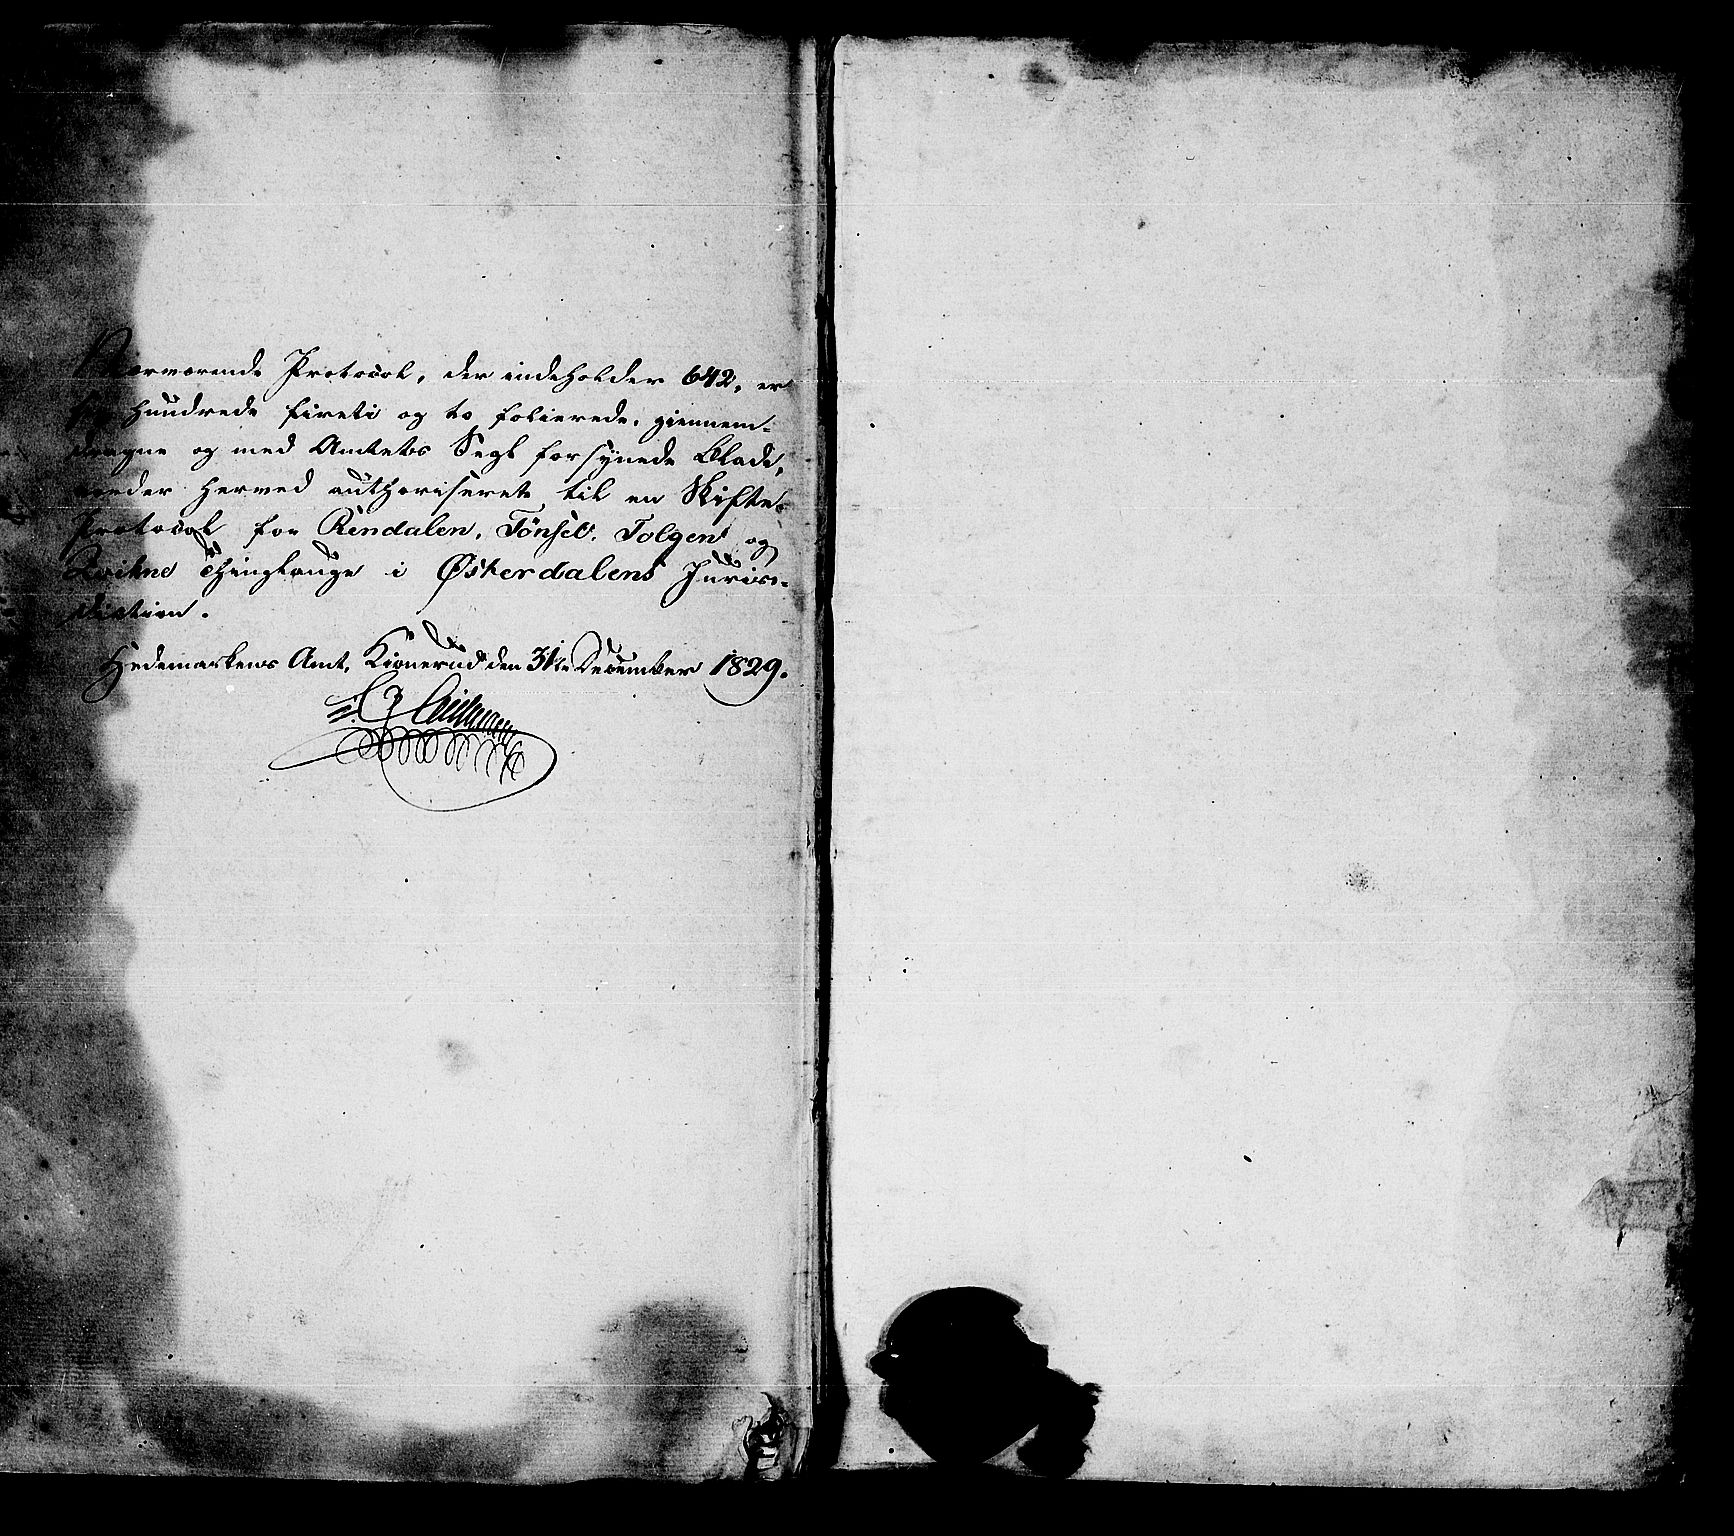 Nærværende Protocol, der indeholder 642, er
sex hundrede fireti og to folierede, giennem-
dragne og med Amtets Segl forsynede Blade,
vorder herved authoriseret til en Skifte-
Protocol for Rendalen, Tönset, Tolgen og
Qvikne Thinglauge i Østerdalens Juris-
diction.
Hedemarkens Amt, Kiønerud den 31te December 1829.